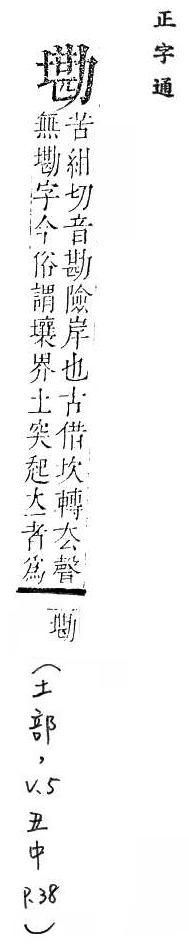 正字通
墈
苦紺切音勘險岸也古借坎轉厺聲
無墈字今俗謂壤界土突起立者爲
墈
(土部,V.5丑中P.38)